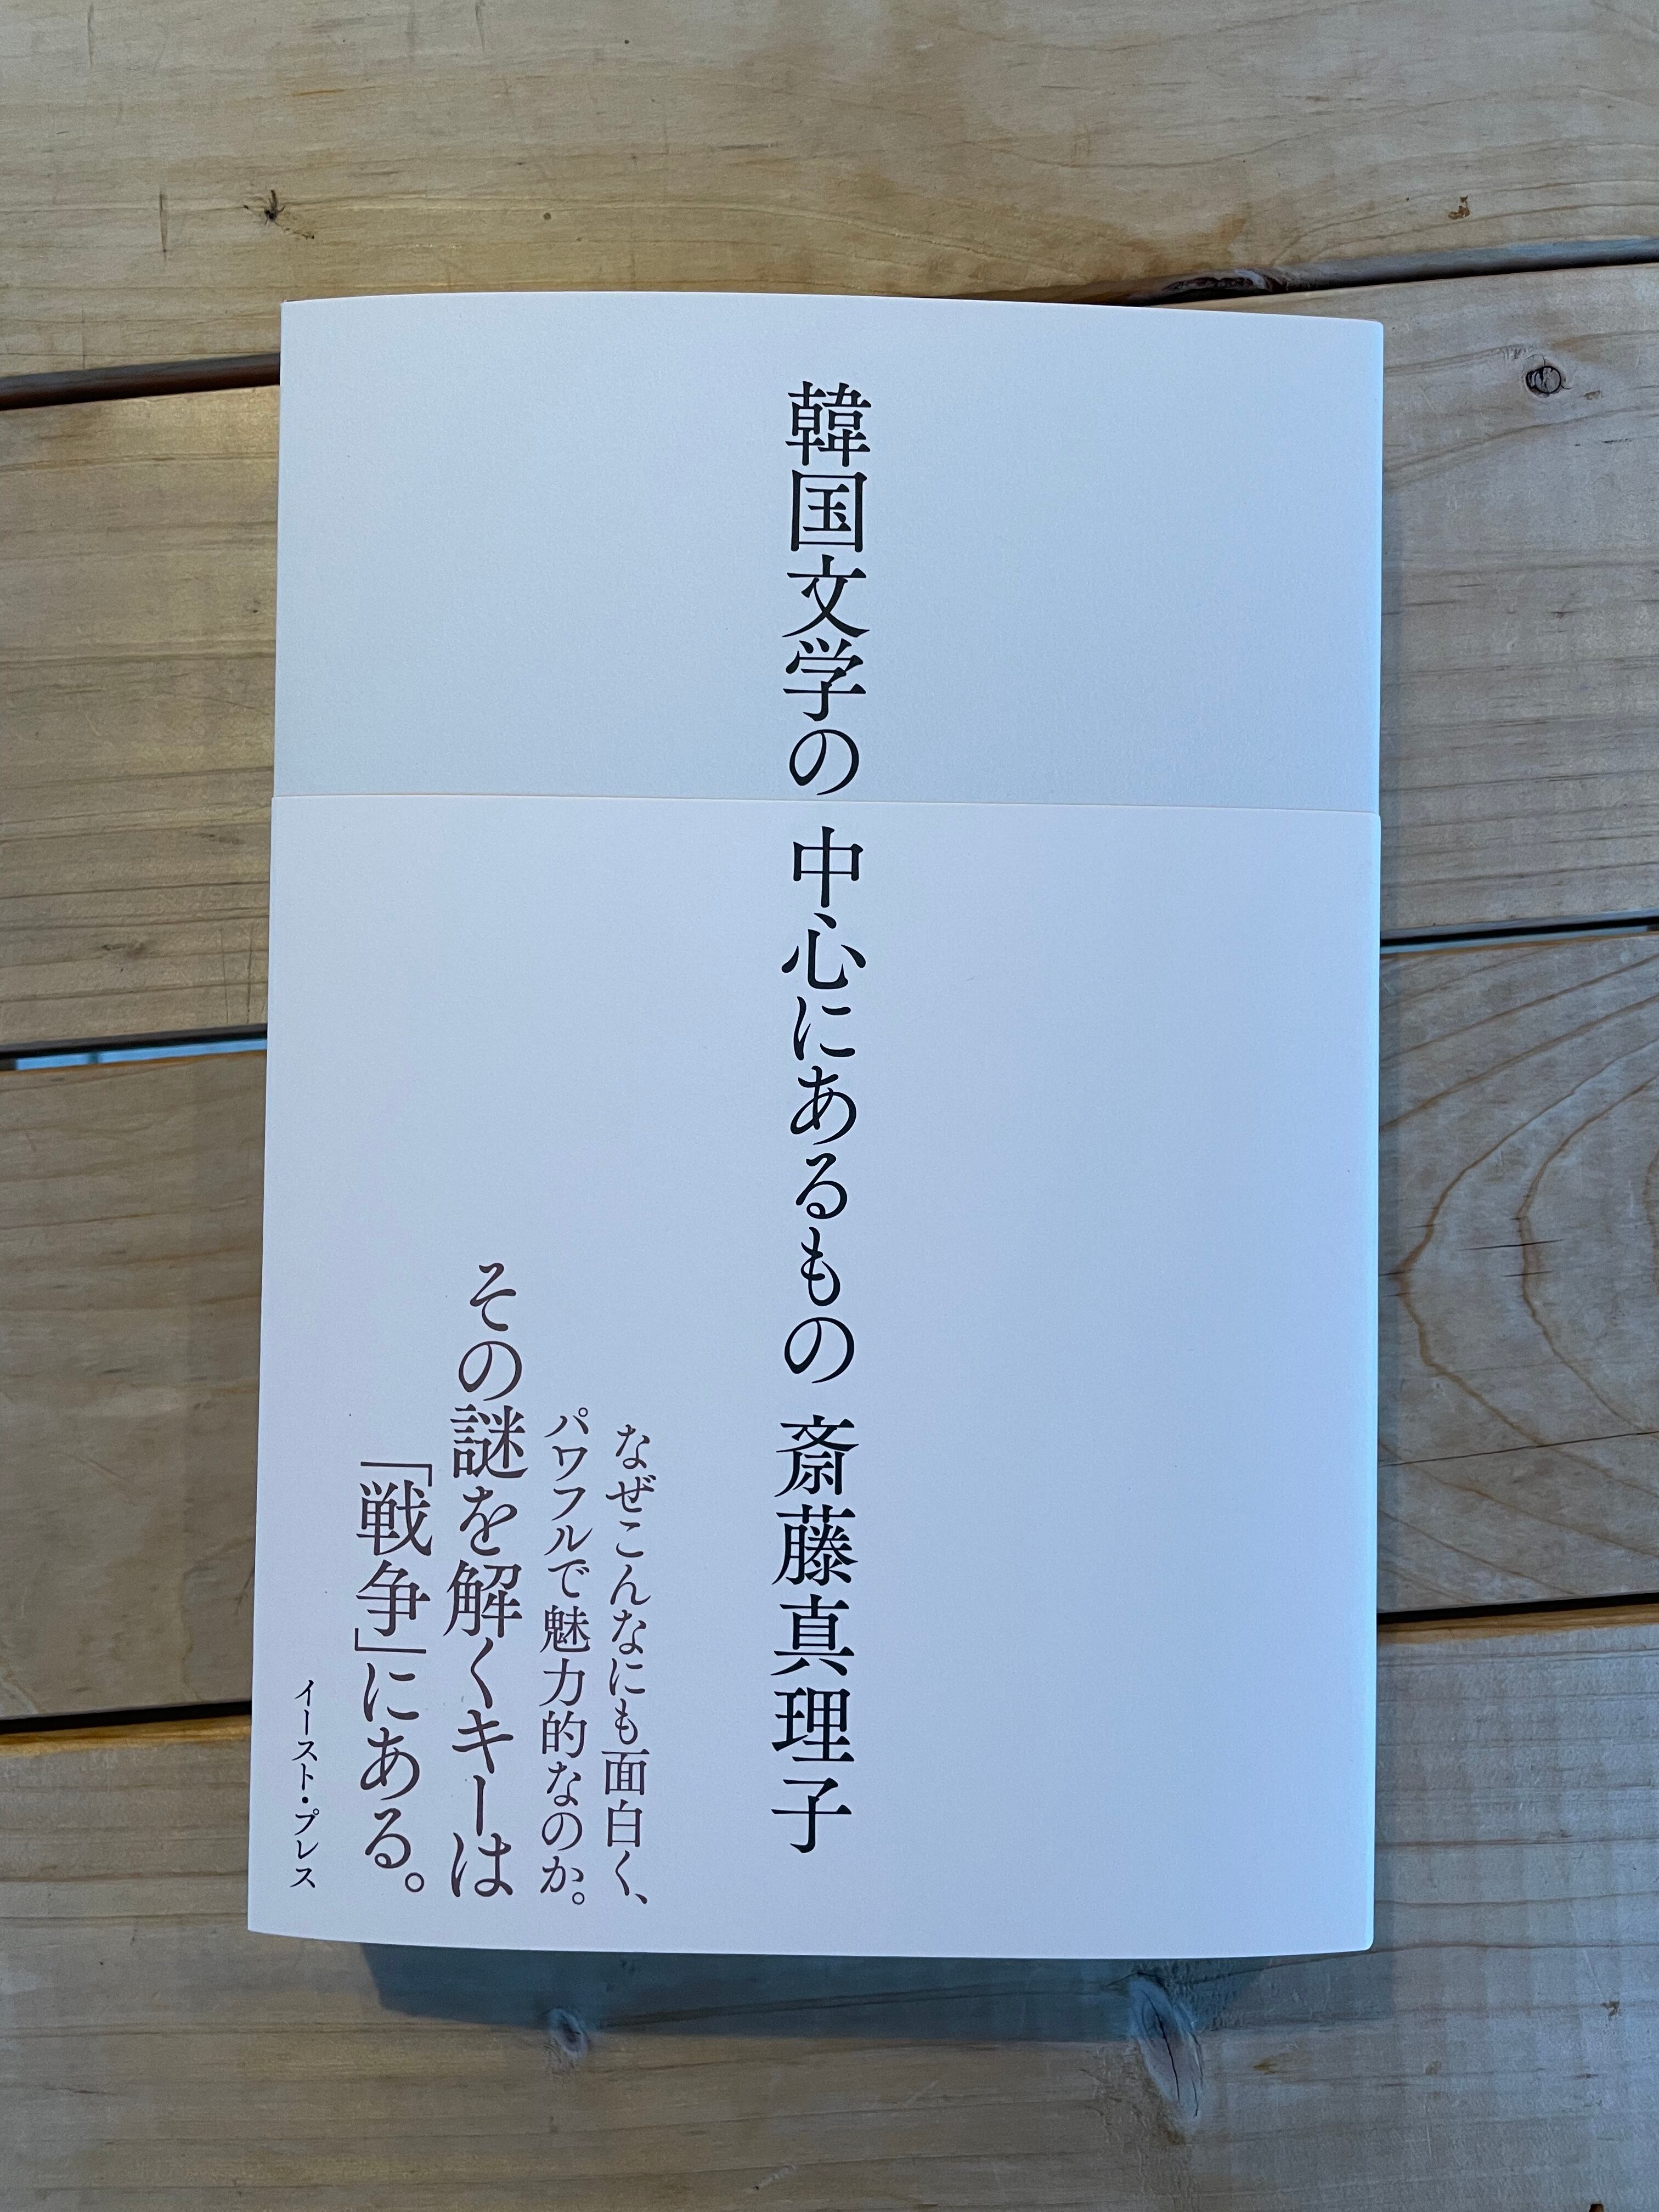 韓国文学の 中心にあるもの 斎藤真理子
なぜこんなにも面白く、
パワフルで魅力的なのか。
その謎を解くキーは
「戦争」にある。
イースト・プレス